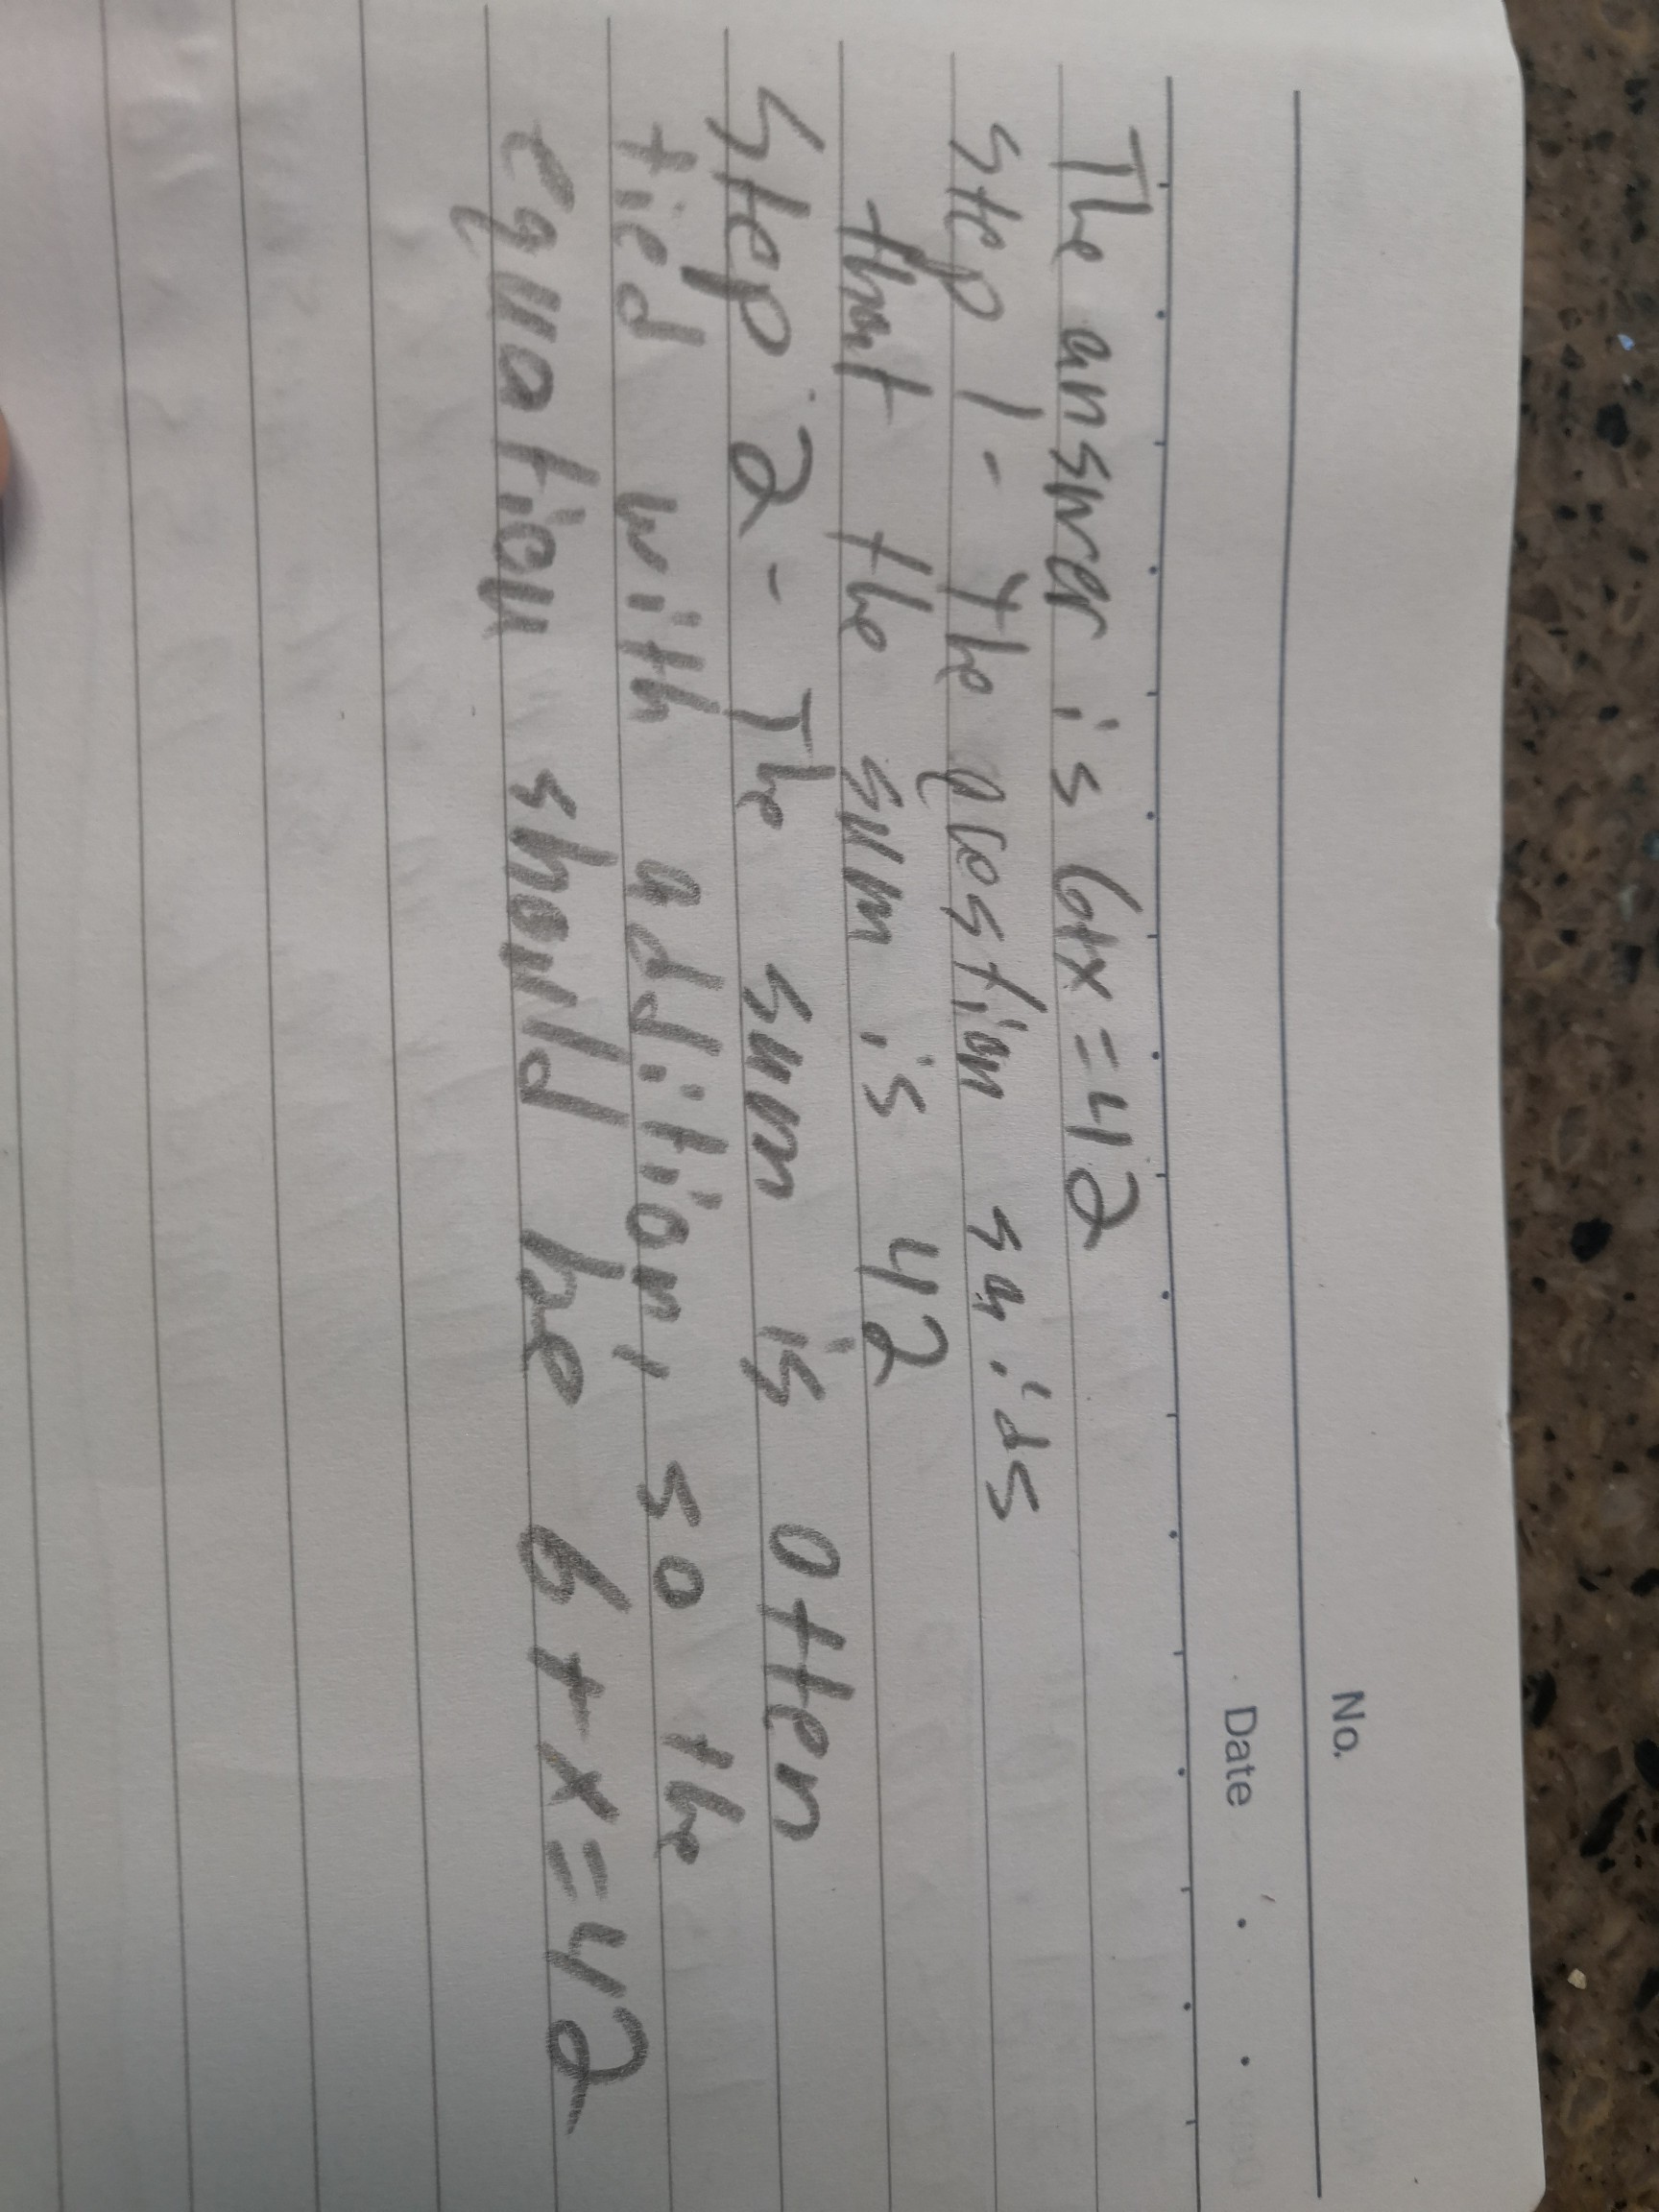 No.
Date . .
The answer is 6+x=42
step 1 - the qestion saids
that the sum is 42
step 2 - The sum is otten
tied with addition, so the
equation should be 6+x=42